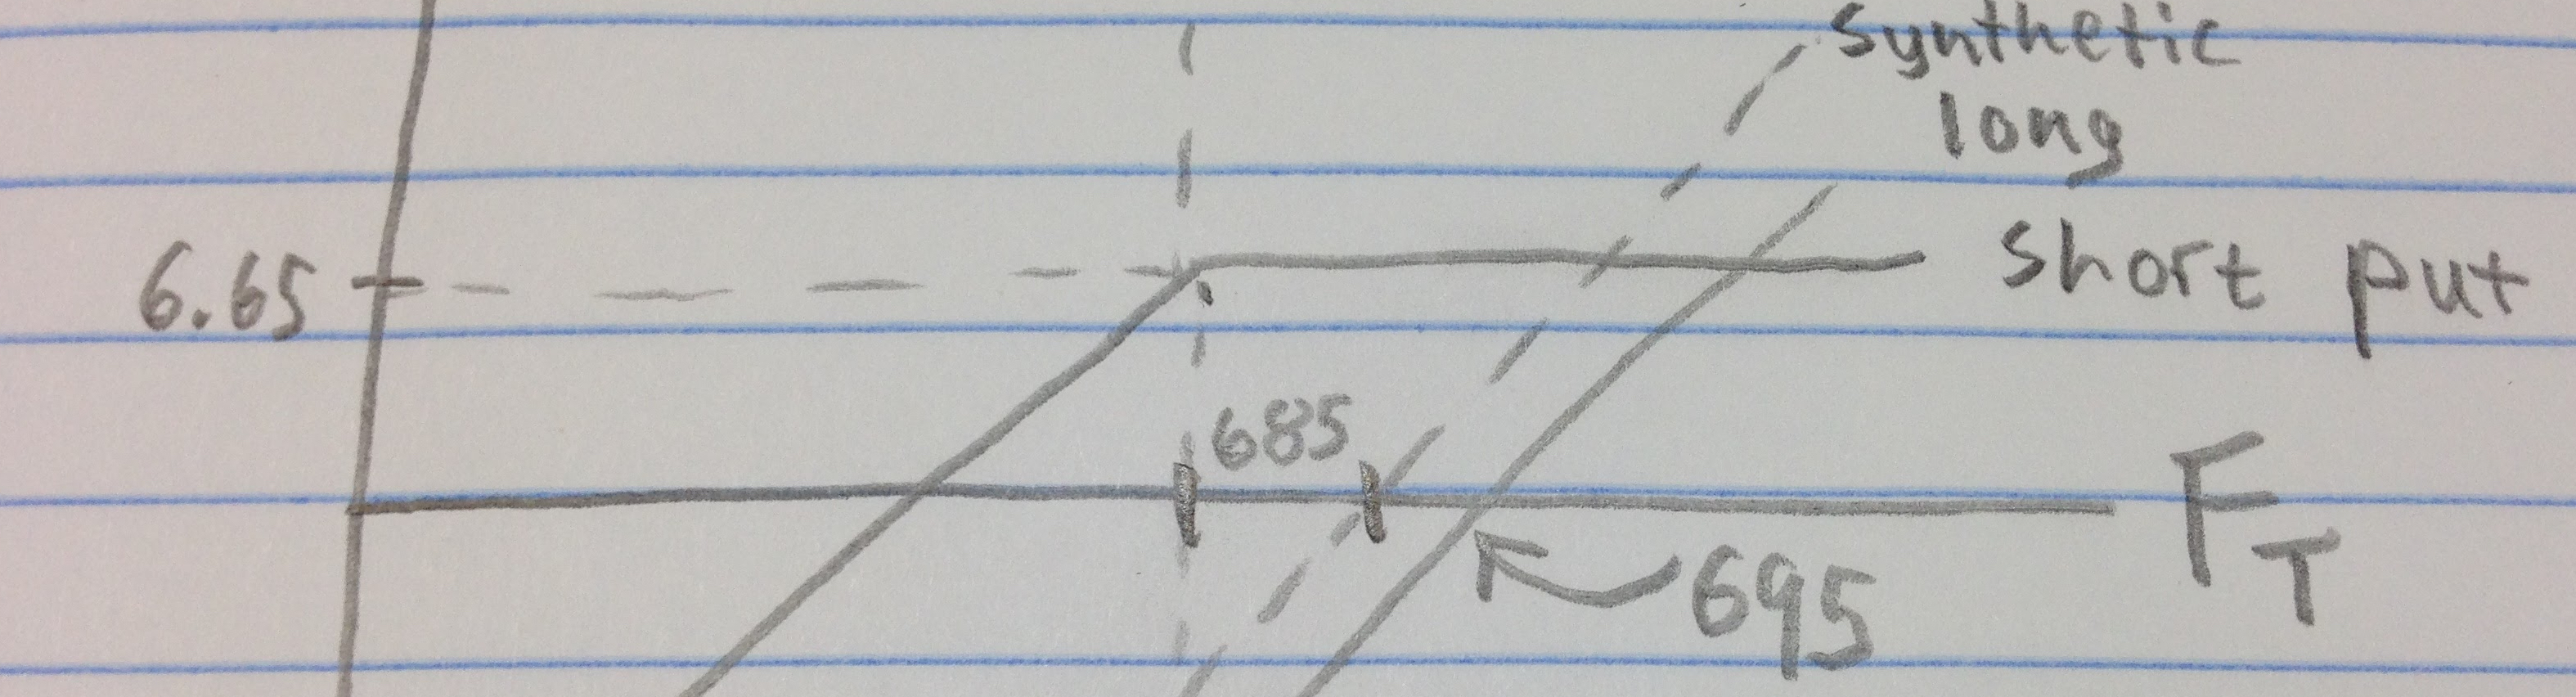 synthetic
long
short put
6.65
685
F_T
695